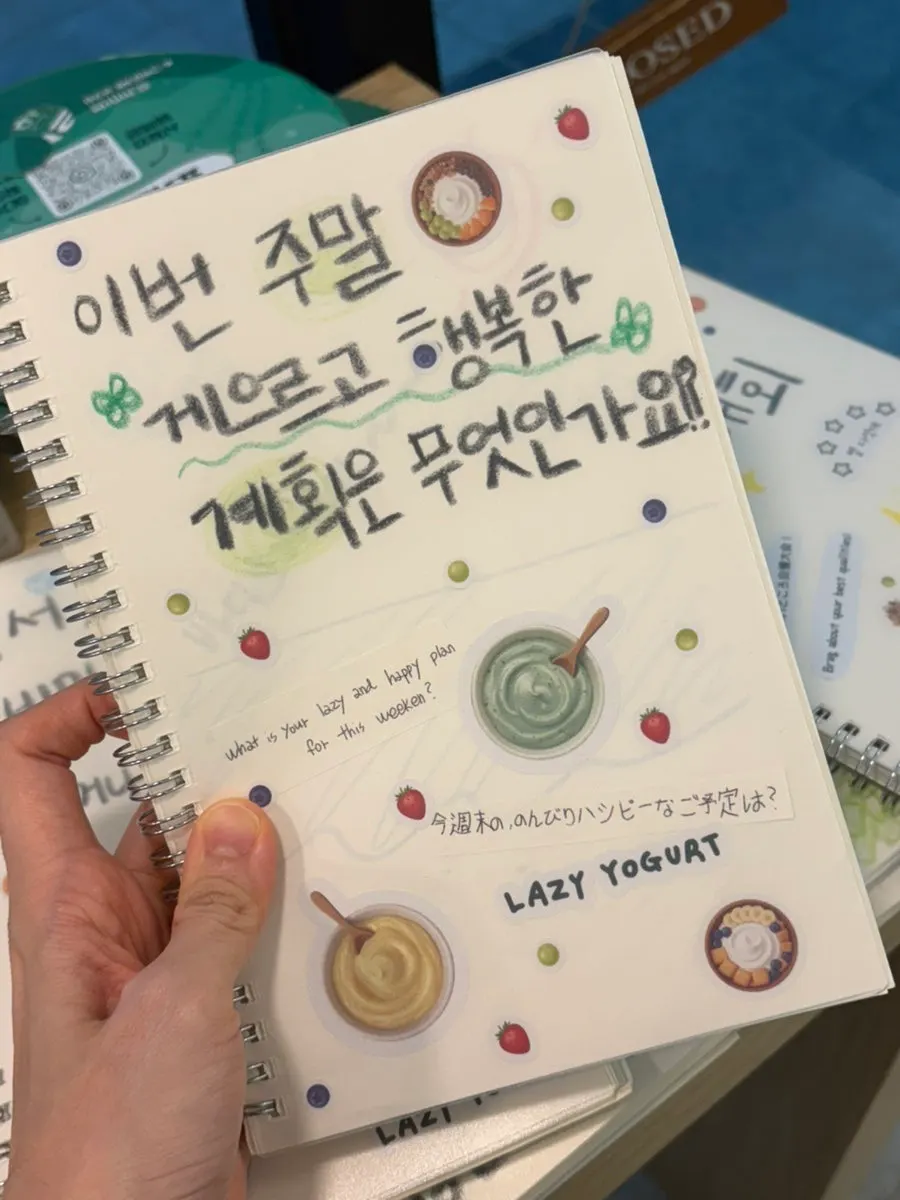 OSED
이번 주말
게으르고 행복한
계획은 무엇인가요!?
What is your lazy and happy plan
for this weeken?
今週末の、のんびりハッピーなご予定は?
LAZY YOGURT
Brag about your best qualities!
LAZY